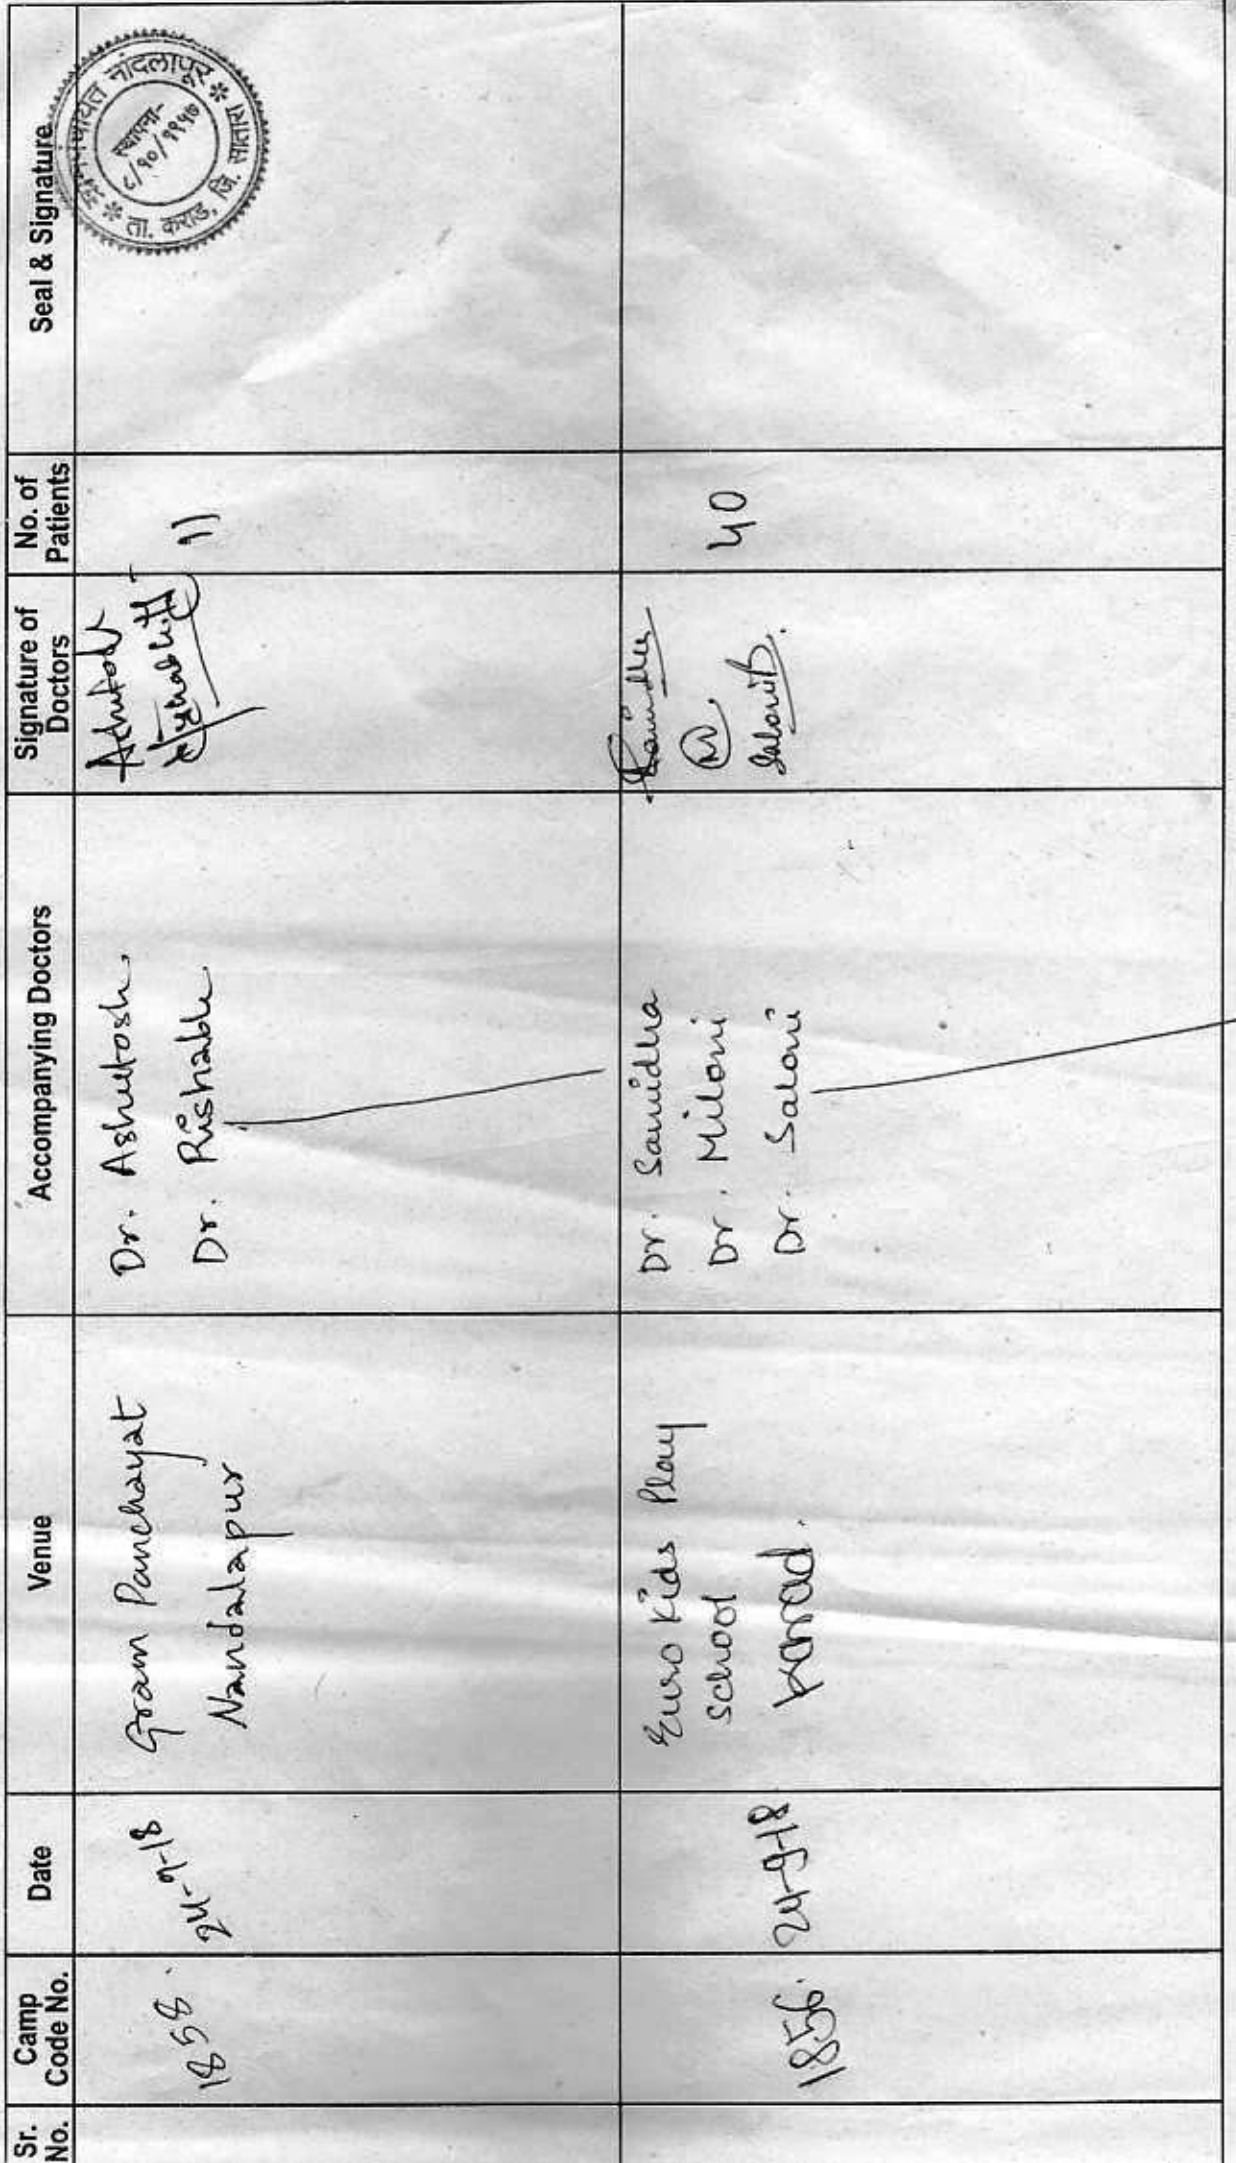 Sr. No.
Camp Code No.
Date
Venue
Accompanying Doctors
Signature of Doctors
No. of Patients
Seal & Signature
1858.
24-9-18
Gram Panchayat
Nandalapur
Dr. Ashutosh
Dr. Rishabh
11
ग्रामपंचायत नांदलापूर
स्थापना-
८/१०/१९५७
ता. कराड, जि. सातारा
1856.
24-9-18
Euro Kids Play
School
Karad.
Dr. Samidha
Dr. Miloni
Dr. Saloni
Saloni
40